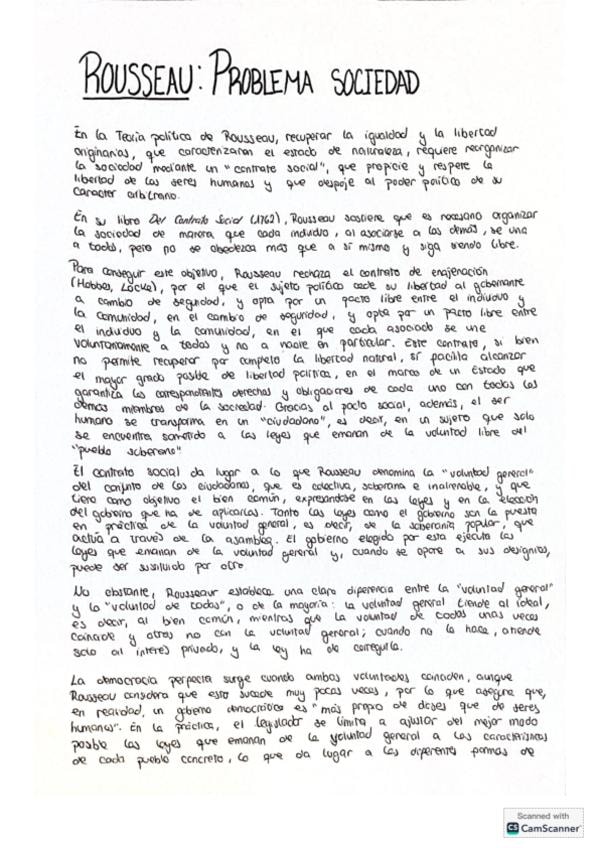 ROUSSEAU: PROBLEMA SOCIEDAD
En la Teoría política de Rousseau, recuperar la igualdad y la libertad
originarias, que caracterizaran el estado de naturaleza, requiere reorganizar
la sociedad mediante un "contrato social", que propicie y respete la
libertad de los seres humanos y que despoje al poder político de su
carácter arbitrario.
En su libro Del Contrato Social (1762), Rousseau sostiene que es necesario organizar
la sociedad de manera que cada individuo, al asociarse a los demás, se una
a todos, pero no se obedezca más que a sí mismo y siga siendo libre.
Para conseguir este objetivo, Rousseau rechaza el contrato de enajenación
(Hobbes, Locke), por el que el sujeto político cede su libertad al gobernante
a cambio de seguridad, y opta por un pacto libre entre el individuo y
la comunidad, en el cambio de seguridad, y opta por un pacto libre entre
el individuo y la comunidad, en el que cada asociado se une
voluntariamente a todos y no a nadie en particular. Este contrato, si bien
no permite recuperar por completo la libertad natural, sí facilita alcanzar
el mayor grado posible de libertad política, en el marco de un Estado que
garantiza los correspondientes derechos y obligaciones de cada uno con todos los
demás miembros de la sociedad. Gracias al pacto social, además, el ser
humano se transforma en un "ciudadano", es decir, en un sujeto que solo
se encuentra sometido a las leyes que emanan de la voluntad libre del
"pueblo soberano"
El contrato social da lugar a lo que Rousseau denomina la "voluntad general"
del conjunto de los ciudadanos, que es colectiva, soberana e inalienable, y que
tiene como objetivo el bien común, expresándose en las leyes y en la elección
del gobierno que ha de aplicarlas. Tanto las leyes como el gobierno son la puesta
en práctica de la voluntad general, es decir, de la soberanía popular, que
actúa a través de la asamblea. El gobierno elegido por esta ejecuta las
leyes que emanan de la voluntad general y, cuando se opone a sus designios,
puede ser sustituido por otro
No obstante, Rousseaur establece una clara diferencia entre la "voluntad general"
y la "voluntad de todos", o de la mayoría: la voluntad general tiende al ideal,
es decir, al bien común, mientras que la voluntad de todos unas veces
coincide y otras no con la voluntad general; cuando no lo hace, atiende
solo al interés privado, y la ley ha de corregirla.
La democracia perfecta surge cuando ambas voluntades coinciden, aunque
Rousseau considera que esto sucede muy pocas veces, por lo que asegura que,
en realidad, un gobierno democrático es "más propio de dioses que de seres
humanos". En la práctica, el legislador se limita a ajustar del mejor modo
posible las leyes que emanan de la voluntad general a las características
de cada pueblo concreto, lo que da lugar a las diferentes formas de
Scanned with
CS CamScanner